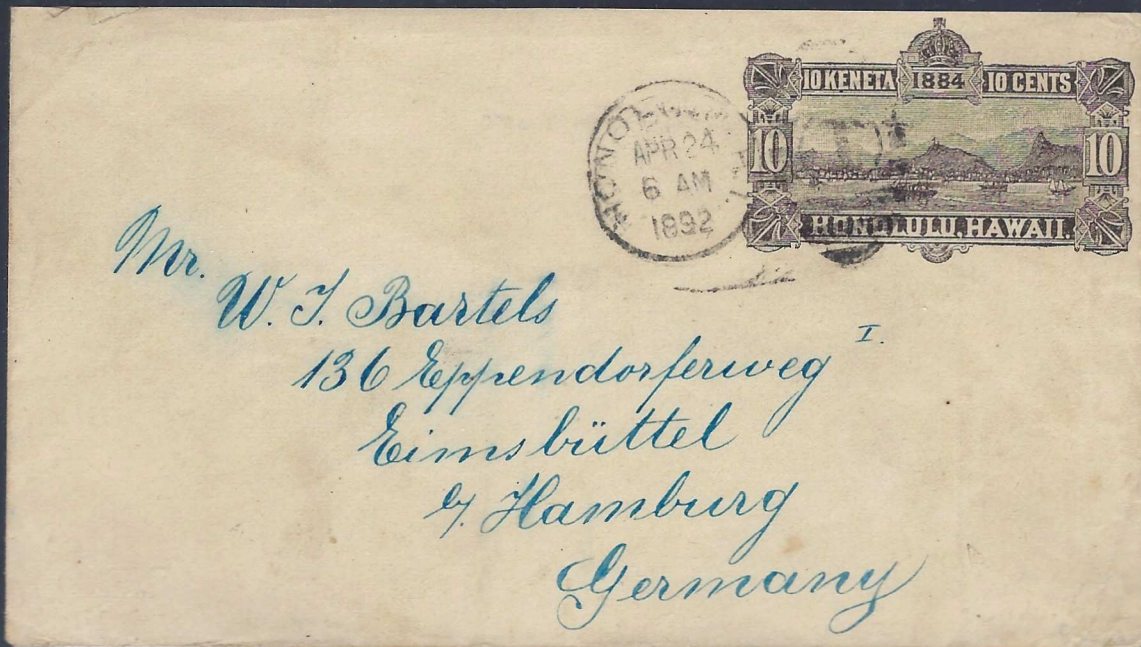 10 KENETA 1884 10 CENTS
10 10
HONOLULU, HAWAII.
HONOLULU
APR 24
6 AM
1892
Mr.
W. J. Bartels
136 Eppendorferweg I.
Eimsbüttel
b/. Hamburg
Germany